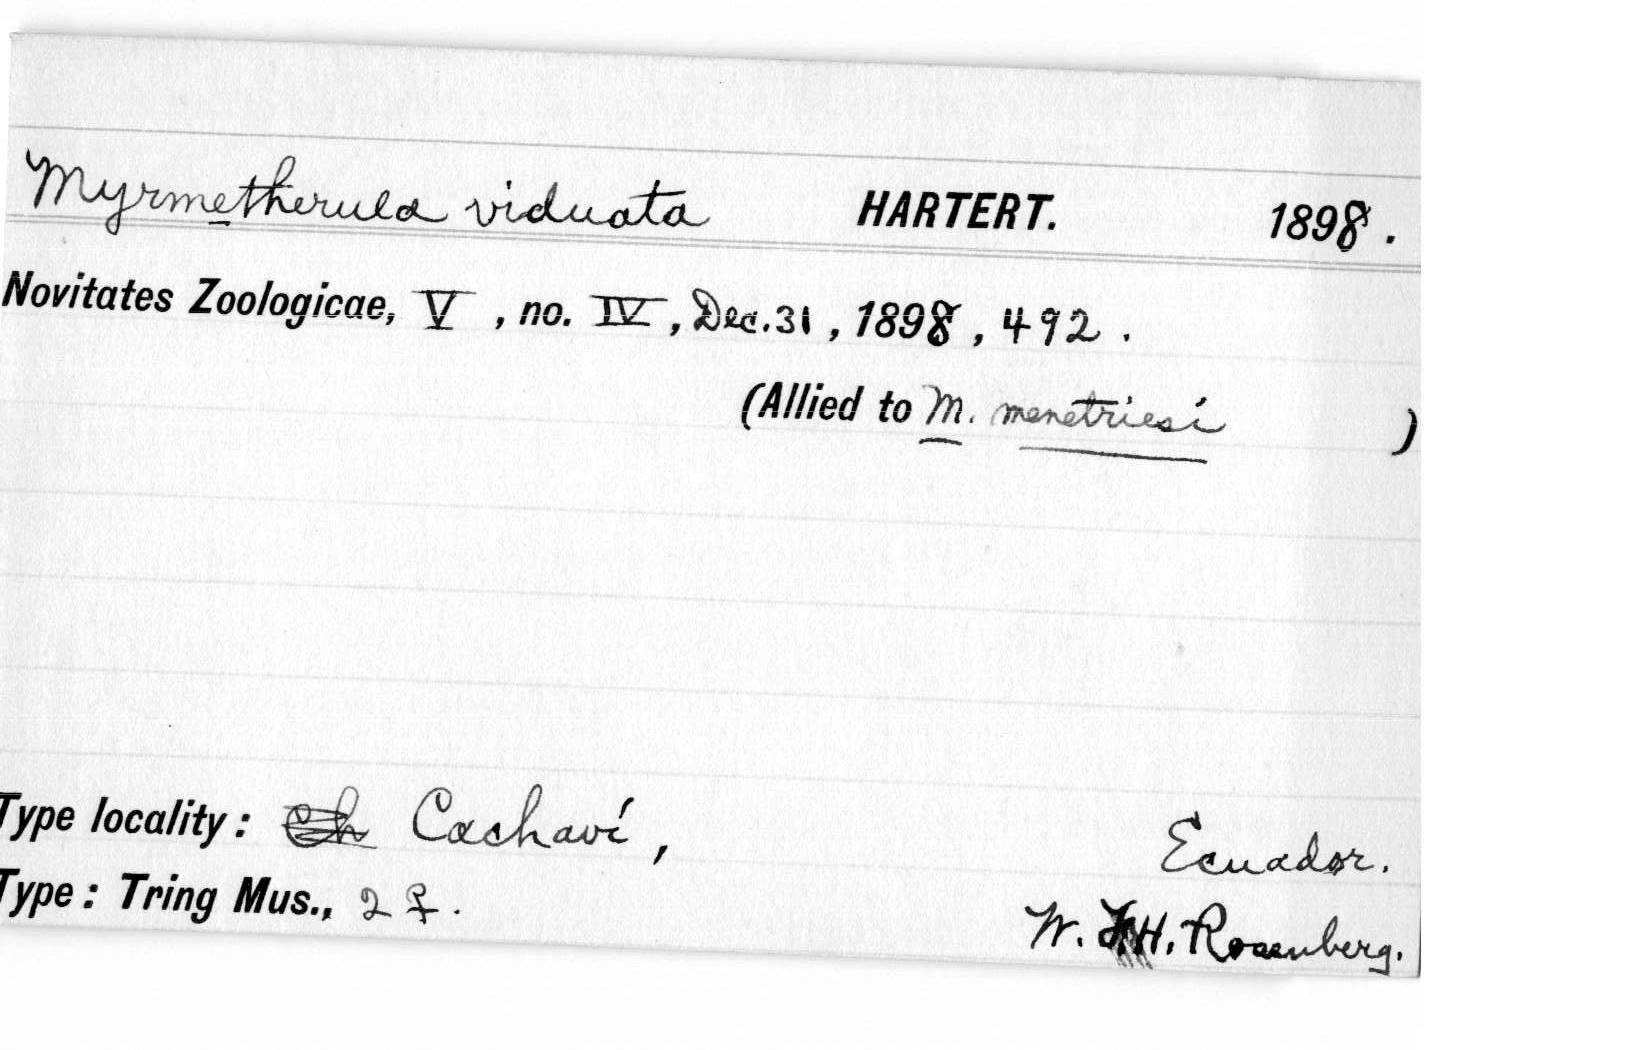 Myrmetherula viduata HARTERT. 1898.
Novitates Zoologicae, V, no. IV, Dec. 31, 1898, 492.
(Allied to M. menetriesi )
Type locality: Cachaví, Ecuador.
Type: Tring Mus., 2 ♀.
W. F. H. Rosenberg.